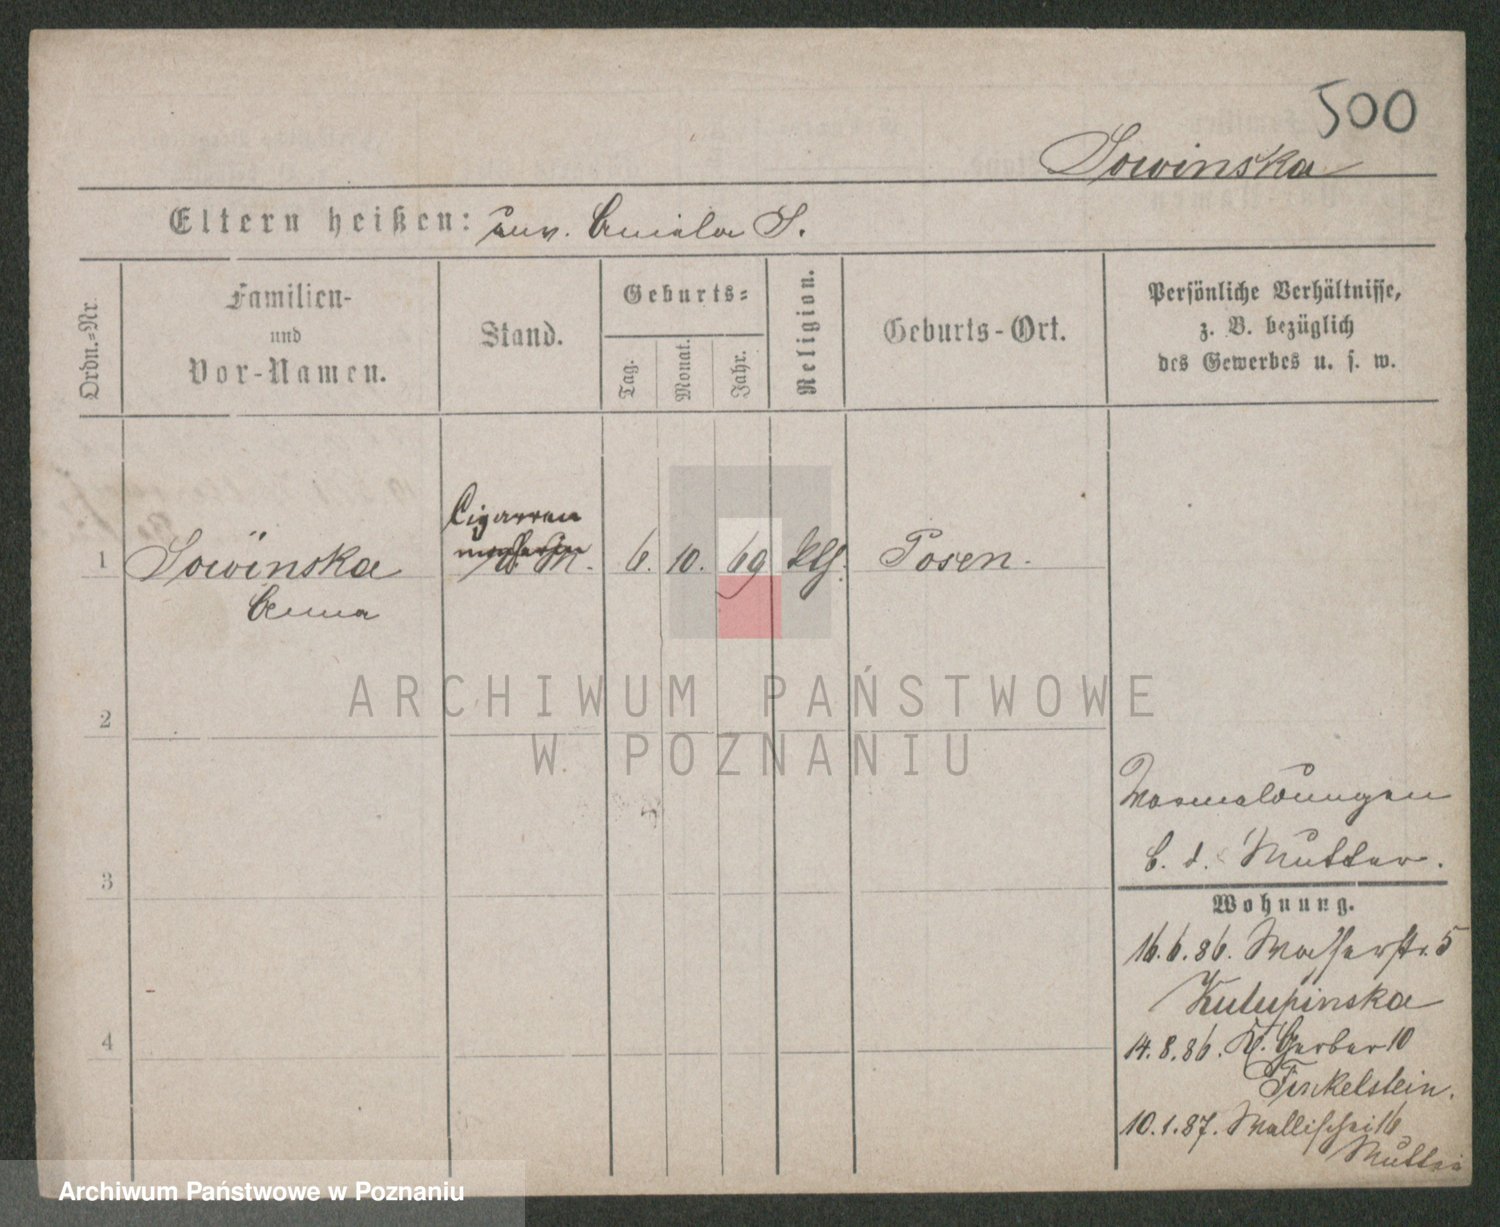 500
Sowinska
Eltern heißen: unv. Amiela S.
Ordn.=Nr.
Familien-
und
Vor-Namen.
Stand.
Geburts=
Tag.
Monat.
Jahr.
Religion.
Geburts-Ort.
Persönliche Verhältnisse,
z. B. bezüglich
des Gewerbes u. s. w.
Cigarren
1 Sowinska 6. 10. 69 Posen.
Anna
2
3
4
ARCHIWUM PAŃSTWOWE
W POZNANIU
b. d. Mutter.
Wohnung.
16.6.86. Wasserstr. 5
14.8.86. Gerber 10
Finkelstein.
10.1.87. Wallischei 16
Mutter
Archiwum Państwowe w Poznaniu